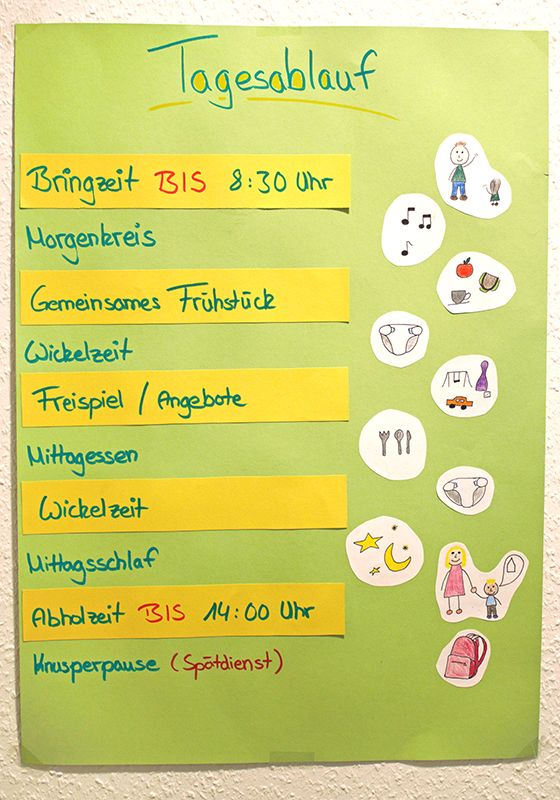 Tagesablauf
Bringzeit BIS 8:30 Uhr
Morgenkreis
Gemeinsames Frühstück
Wickelzeit
Freispiel / Angebote
Mittagessen
Wickelzeit
Mittagsschlaf
Abholzeit BIS 14:00 Uhr
Knusperpause (Spätdienst)